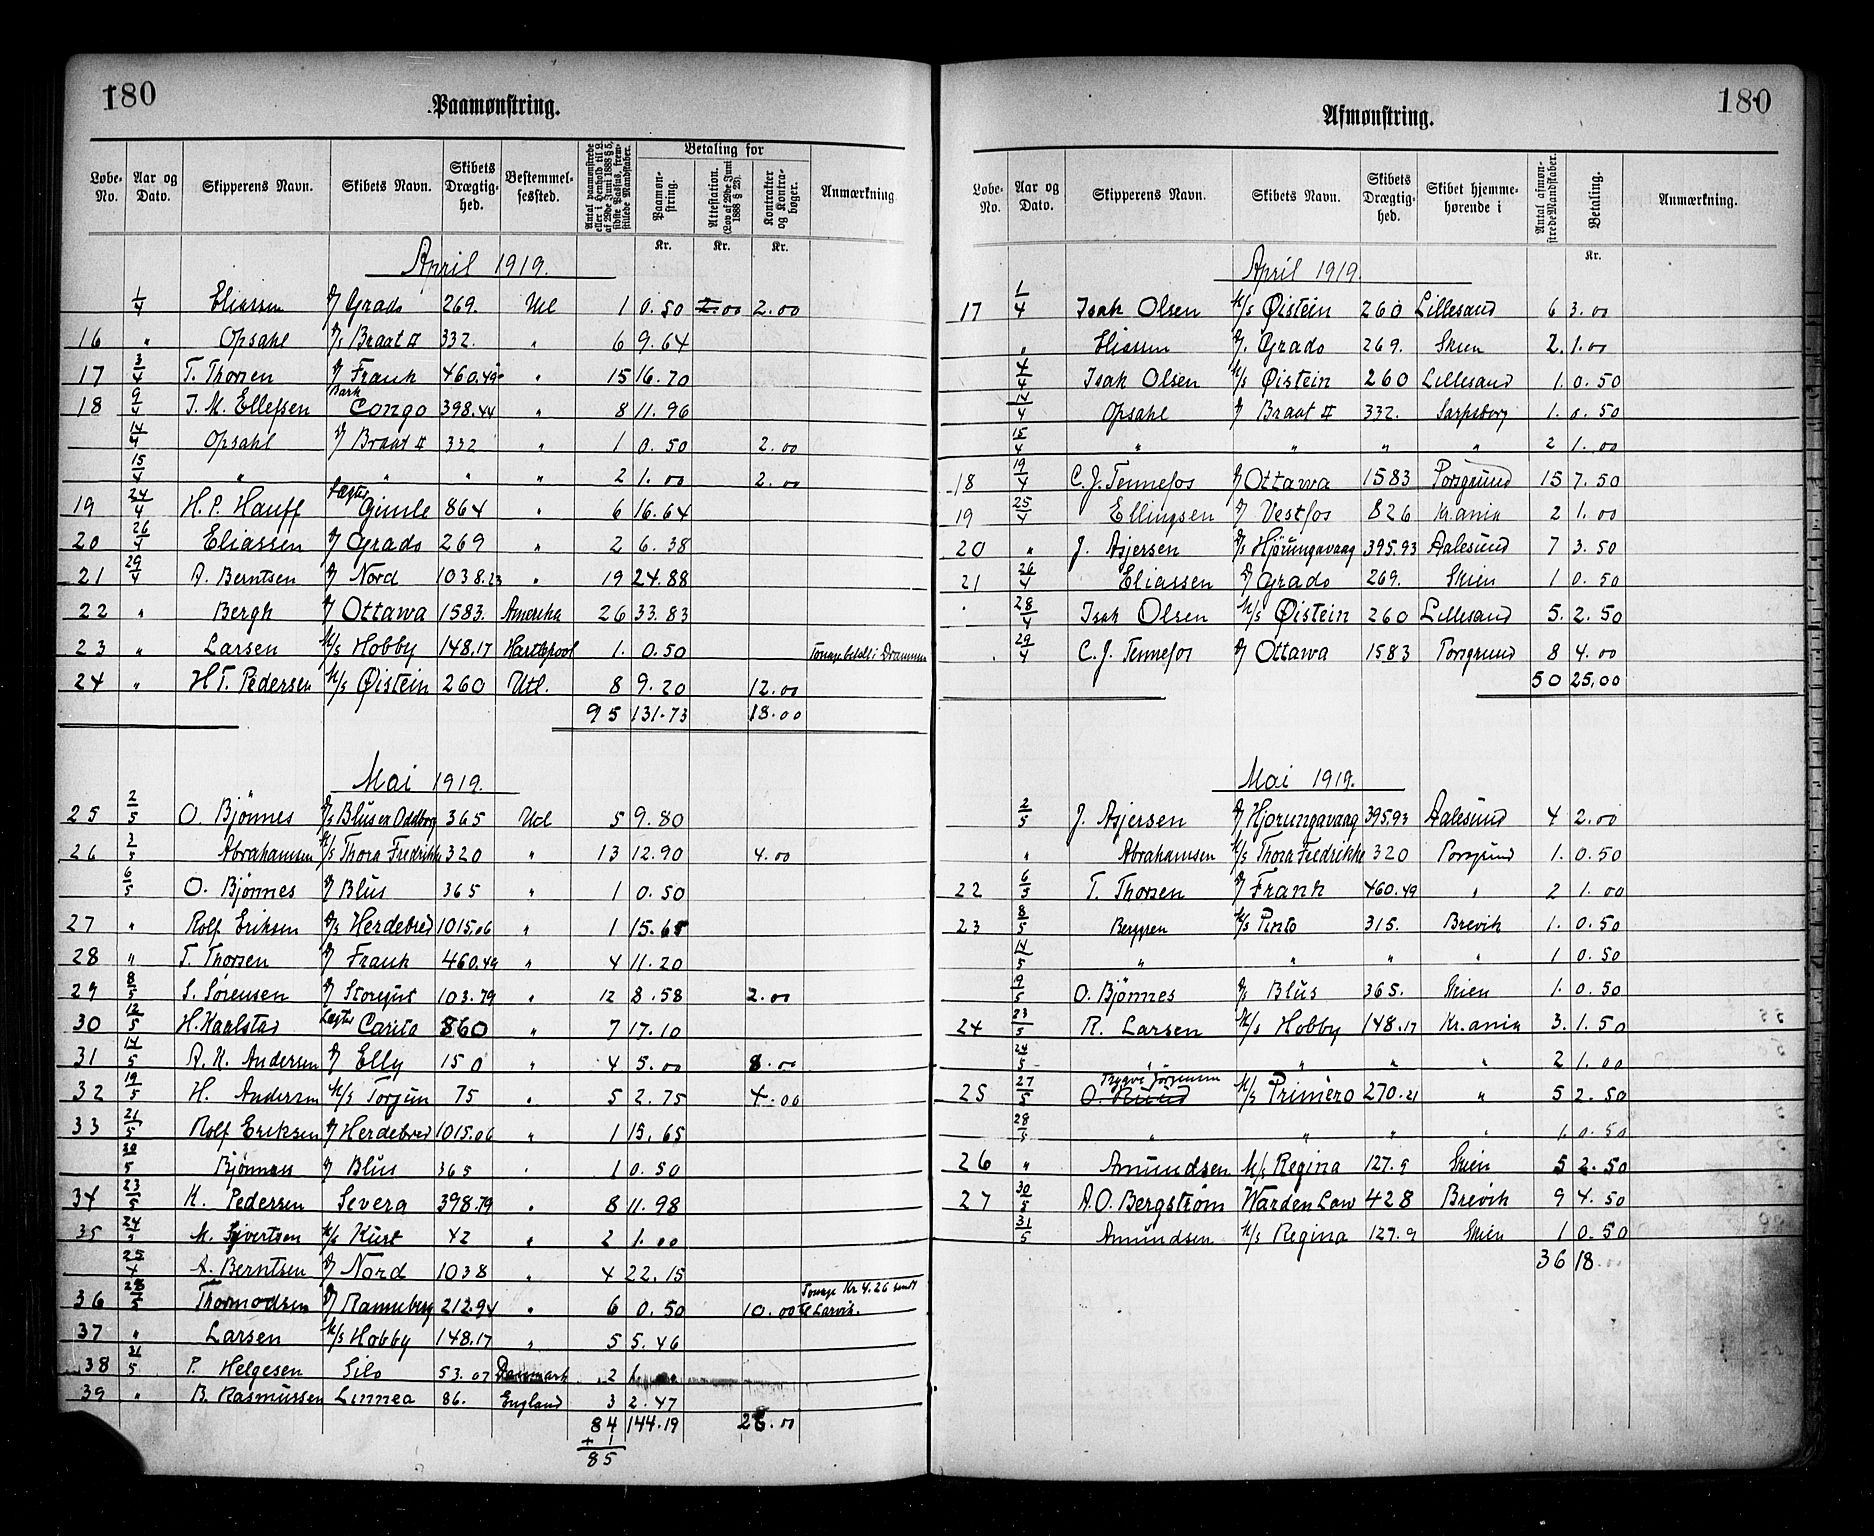 180
Paamønstring.
Løbe-No. Aar og Dato. Skipperens Navn. Skibets Navn. Skibets Drægtighed. Bestemmelsessted. Antal paamønstrede eller i Henhold til L. af 29de Juni 1888 § 5, sidste Passus, fremstillede Mandskaber. Betaling for Paamønstring. Attestation. (Lov af 29de Juni 1888 § 25). Kontrakter og Kontrabøger. Anmærkning.
Kr. Kr. Kr.
April 1919.
1/4 Eliassen D/ Grado 269. Utl 1 0.50 2.00 2.00
16 " Opsahl D/s Braat II 332. " 6 9.64
17 3/4 T. Thorsen D/ Frank 460.49 " 15 16.70
18 9/4 J. M. Ellefsen Bark Congo 398.44 " 8 11.96
14/4 Opsahl D/ Braat II 332 " 1 0.50 2.00
15/4 " " " " 2 1.00 2.00
19 24/4 H. P. Hauff Lægter Gimle 864 " 6 16.64
20 26/4 Eliassen D/ Grado 269 " 2 6.38
21 29/4 A. Berntsen D/ Nord 1038.23 " 19 24.88
22 " Bergh D/ Ottawa 1583. Amerika 26 33.83
23 " Larsen M/s Hobby 148.17 Hartlepool 1. 0.50 Tonage betalt i Drammen
24 " H T. Pedersen M/s Øistein 260 Utl. 8 9.20 12.00
95 131.73 18.00
Mai 1919.
25 2/5 O. Bjønnes D/s Blus ex Oddborg 365 Utl 5 9.80
26 2/5 Abrahamsen M/s Thora Fredrikke 320 " 13 12.90 4.00
6/5 O. Bjønnes D/ Blus 365 " 1 0.50
27 " Rolf Eriksen D/s Herdebred 1015.06 " 1 15.65
28 " T. Thorsen D/ Frank 460.49 " 4 11.20
29 8/5 S. Sørensen D/ Storegut 103.79 " 12 8.58 2.00
30 12/5 H. Kaalstad Lægter Carita 860 " 7 17.10
31 14/5 A. K. Andersen D/ Elly 150 " 4 5.00 8.00
32 19/5 H. Andersen M/s Torgun 75 " 5 2.75 4.00
33 21/5 Rolf Eriksen D/ Herdebred 1015.06 " 1 15.65
20/5 Bjønnes D/ Blus 365 " 1 0.50
34 23/5 K. Pedersen Severa 398.79 " 8 11.98
35 24/5 M. Syvertsen M/s Kurt 42 " 2 1.00
25/4 A. Berntsen D/ Nord 1038 " 4 22.15
36 28/5 Thormodsen D/ Ranneberg 212.94 " 6 0.50 10.00 Tonage Kr 4.26 sendt til Larvik.
37 " Larsen M/s Hobby 148.17 " 5 5.46
38 31/5 P. Helgesen Silo 53.07 Danmark 2 1.
39 " B. Rasmussen Linnea 86. England 3 2.47
84 144.19 28.00
+ 1
85
180
Afmønstring.
Løbe-No. Aar og Dato. Skipperens Navn. Skibets Navn. Skibets Drægtighed. Skibet hjemmehørende i Antal afmønstrede Mandskaber. Betaling. Anmærkning.
Kr.
April 1919.
17 1/4 Isak Olsen M/s Øistein 260 Lillesand 6 3.00
" Eliassen D/. Grado 269. Skien 2. 1.00
4/4 Isak Olsen M/s Øistein 260 Lillesand 1. 0.50
14/4 Opsahl D/ Braat II 332. Sarpsborg 1. 0.50
15/4 " " " " 2 1.00
18 19/4 C. J. Tennefos D/ Ottawa 1583 Porsgrund 15 7.50
19 25/4 Ellingsen D/ Vestfos 826 Kr.ania 2 1.00
20 " J. Asjersen D/s Hjørungavaag 395.93 Aalesund 7 3.50
21 26/4 Eliassen D/ Grado 269. Skien 1 0.50
28/4 Isak Olsen M/s Øistein 260 Lillesand 5. 2.50
29/4 C. J. Tennefos D/ Ottawa 1583 Porsgrund 8 4.00
50 25,00
Mai 1919.
2/5 J. Asjersen D/ Hjorungavaag 395.93 Aalesund 4 2.00
" Abrahamsen M/s Thora Fredrikke 320 Porsgrund 1. 0.50
22 6/5 T. Thorsen D/ Frank 460.49 " 2 1.00
23 8/5 Berggren M/s Pinto 315. Brevik 1. 0.50
14/5 " " " " 1 0.50
9/5 O. Bjønnes D/s Blus 365. Skien 1. 0.50
24 23/5 R. Larsen M/s Hobby 148.17 Kr.ania 3. 1.50
24/5 " " " " 2 1.00
25 27/5 Trygve Jørgensen M/s Primero 270.21 " 5 2.50
28/5 " " " " 1. 0.50
26 " Amundsen M/s Regina 127.9 Skien 5 2.50
27 30/5 A. O. Bergstrøm Warden Law 428 Brevik 9 4.50
31/5 Amundsen M/s Regina 127.9 Skien 1 0.50
36 18.00